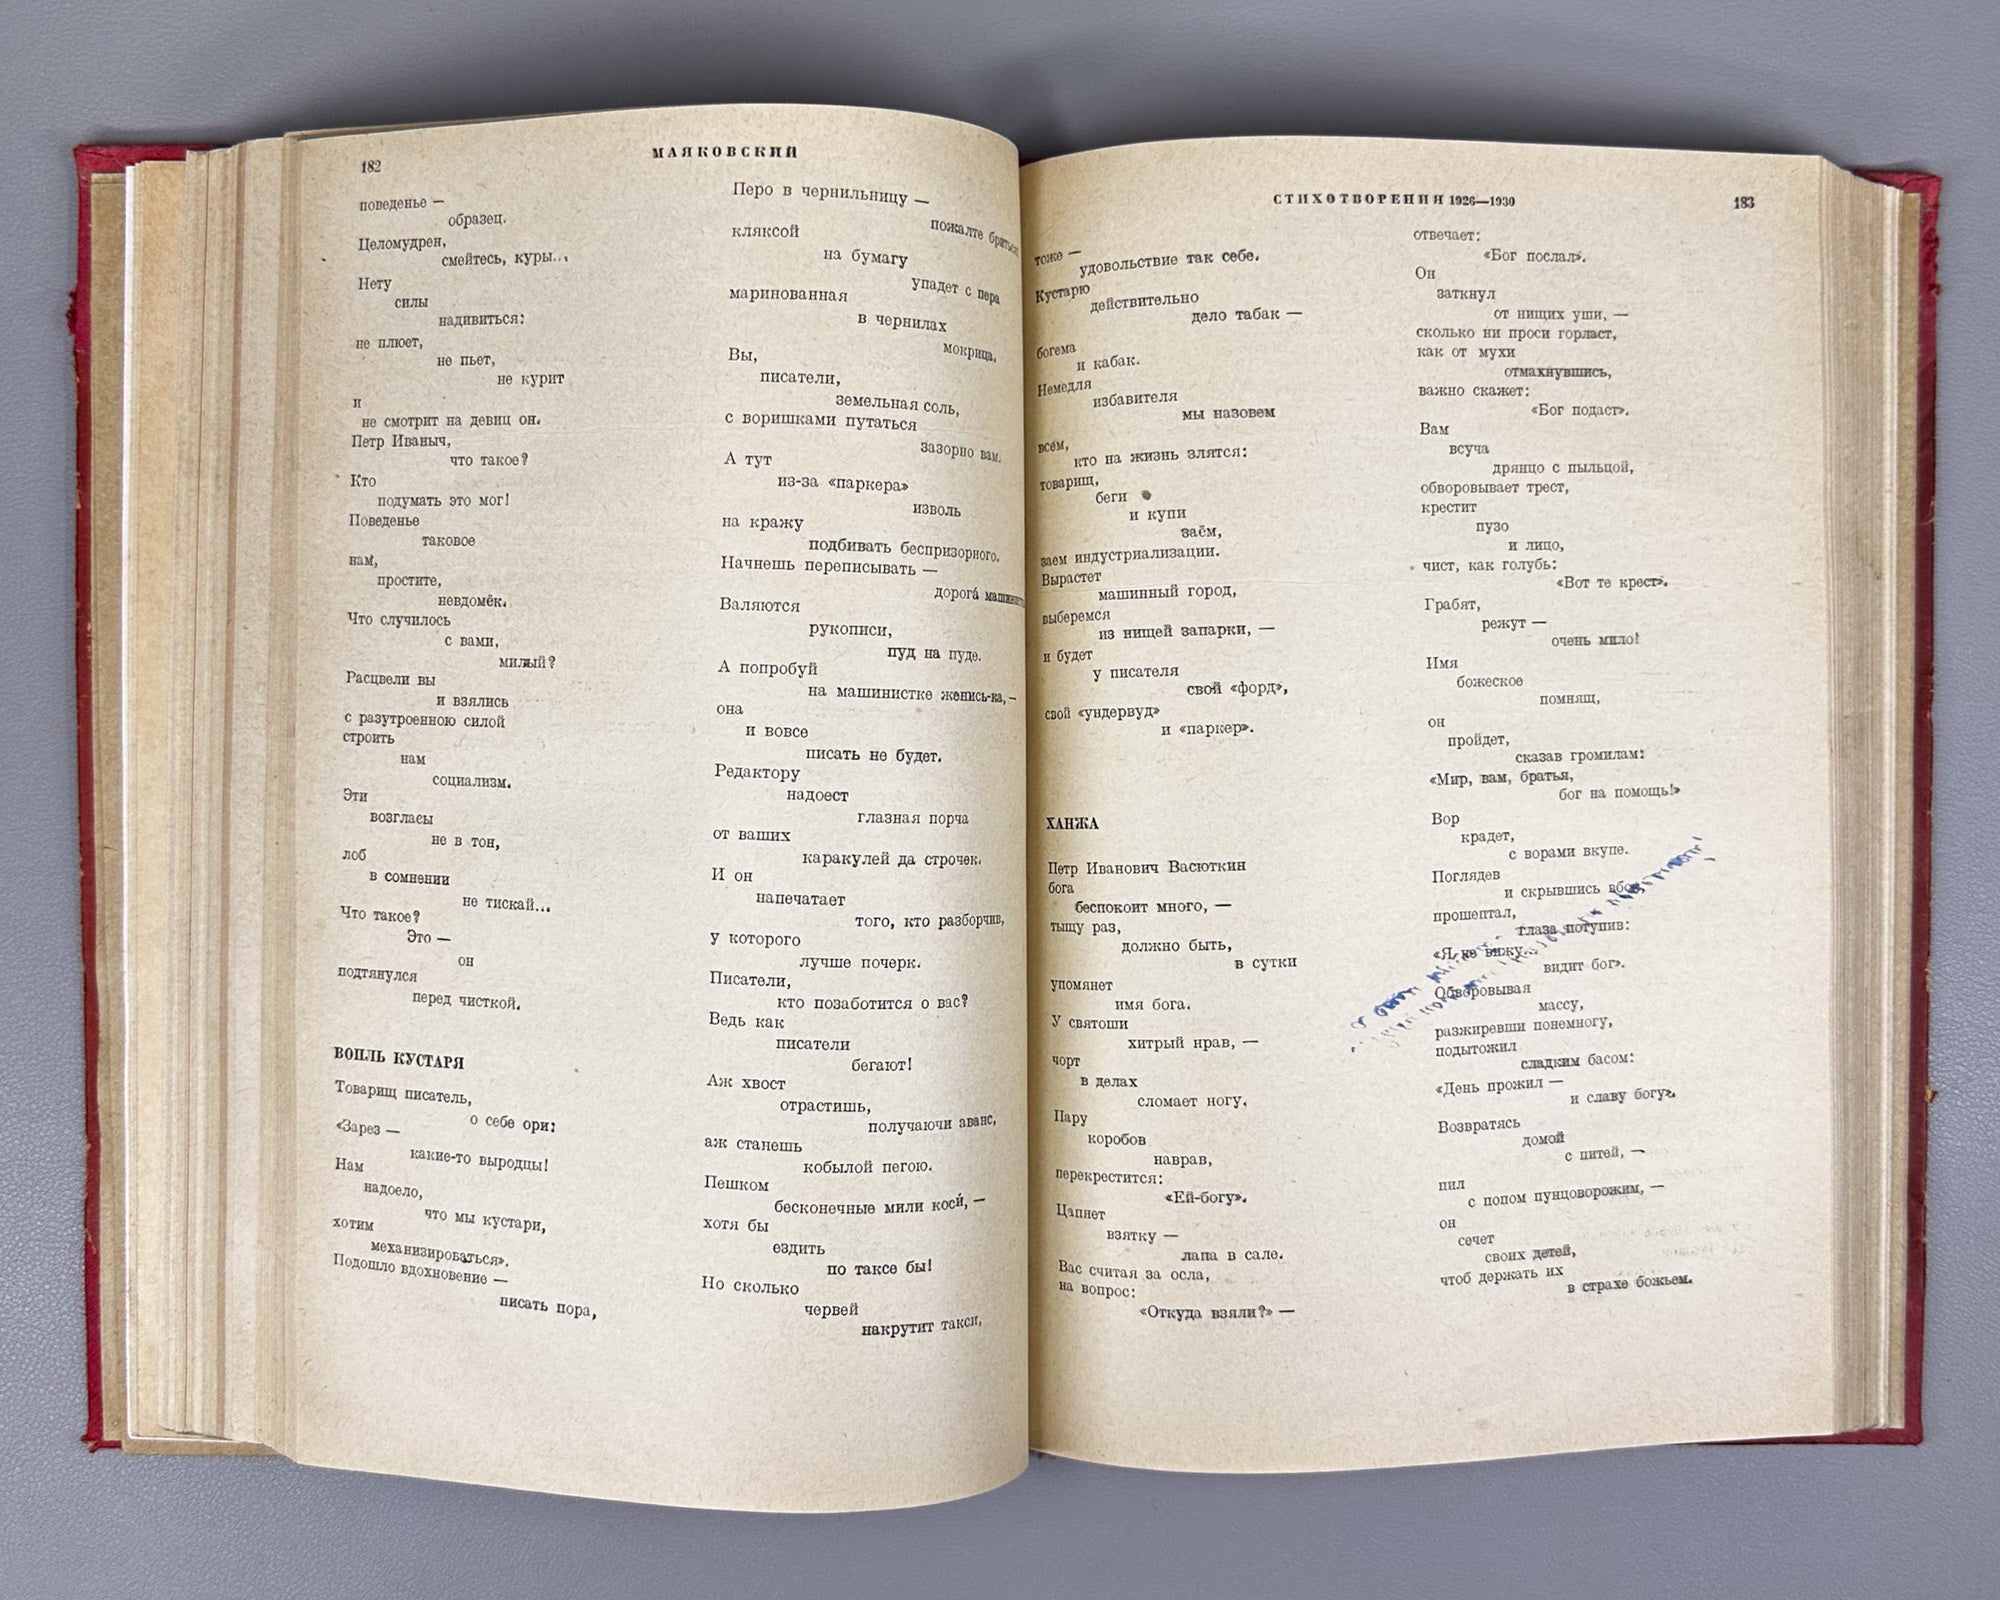 182
МАЯКОВСКИЙ
поведенье —
образец.
Целомудрен,
смейтесь, куры...
Нету
силы
надивиться:
не плюет,
не пьет,
не курит
и
не смотрит на девиц он.
Петр Иваныч,
что такое?
Кто
подумать это мог!
Поведенье
таковое
нам,
простите,
невдомёк.
Что случилось
с вами,
милый?
Расцвели вы
и взялись
с разутроенною силой
строить
нам
социализм.
Эти
возгласы
не в тон,
лоб
в сомнении
не тискай...
Что такое?
Это —
он
подтянулся
перед чисткой.
ВОПЛЬ КУСТАРЯ
Товарищ писатель,
о себе ори:
«Зарез —
какие-то выродцы!
Нам
надоело,
что мы кустари,
хотим
механизироваться».
Подошло вдохновение —
писать пора,
Перо в чернильницу —
пожалте бриться
кляксой
на бумагу
упадет с пера
маринованная
в чернилах
мокрица.
Вы,
писатели,
земельная соль,
с воришками путаться
зазорно вам.
А тут
из-за «паркера»
изволь
на кражу
подбивать беспризорного.
Начнешь переписывать —
дорога́
Валяются
рукописи,
пуд на пуде.
А попробуй
на машинистке женись-ка, —
она
и вовсе
писать не будет.
Редактору
надоест
глазная порча
от ваших
каракулей да строчек.
И он
напечатает
того, кто разборчив,
у которого
лучше почерк.
Писатели,
кто позаботится о вас?
Ведь как
писатели
бегают!
Аж хвост
отрастишь,
получаючи аванс,
аж станешь
кобылой пегою.
Пешком
бесконечные мили коси́, —
хотя бы
ездить
по таксе бы!
Но сколько
червей
накрутит такси,
СТИХОТВОРЕНИЯ 1926—1930
183
тоже —
удовольствие так себе.
Кустарю
действительно
дело табак —
богема
и кабак.
Немедля
избавителя
мы назовем
всем,
кто на жизнь злятся:
товарищ,
беги
и купи
заём,
заем индустриализации.
Вырастет
машинный город,
выберемся
из нищей запарки, —
и будет
у писателя
свой «форд»,
свой «ундервуд»
и «паркер».
ХАНЖА
Петр Иванович Васюткин
бога
беспокоит много, —
тыщу раз,
должно быть,
в сутки
упомянет
имя бога.
У святоши
хитрый нрав, —
чорт
в делах
сломает ногу.
Пару
коробов
наврав,
перекрестится:
«Ей-богу».
Цапнет
взятку —
лапа в сале.
Вас считая за осла,
на вопрос:
«Откуда взяли?» —
отвечает:
«Бог послал».
Он
заткнул
от нищих уши, —
сколько ни проси горласт,
как от мухи
отмахнувшись,
важно скажет:
«Бог подаст».
Вам
всуча
дрянцо с пыльцой,
обворовывает трест,
крестит
пузо
и лицо,
чист, как голубь:
«Вот те крест».
Грабят,
режут —
очень мило!
Имя
божеское
помнящ,
он
пройдет,
сказав громилам:
«Мир, вам, братья,
бог на помощь!»
Вор
крадет,
с ворами вкупе.
Поглядев
и скрывшись вбок,
прошептал,
глаза потупив:
«Я не вижу,
видит бог».
Обворовывая
массу,
разжиревши понемногу,
подытожил
сладким басом:
«День прожил —
и славу богу».
Возвратясь
домой
с питей, —
пил
с попом пунцоворожим, —
он
сечет
своих детей,
чтоб держать их
в страхе божьем.